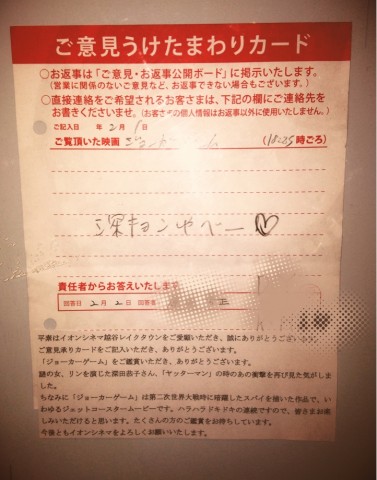 ご意見うけたまわりカード
○お返事は「ご意見・お返事公開ボード」に掲示いたします。
(営業に関係のないご意見など、お返事できない場合もございます。)
○直接連絡をご希望されるお客さまは、下記の欄にご連絡先を
お書きくださいませ。(お客さまの個人情報はお返事以外に使用いたしません。)
ご記入日 年 2月 1日
ご覧頂いた映画 ジョーカーゲーム (18:25時ごろ)
深キョンやべー♡
責任者からお答えいたします
回答日 2月 2日 回答者 正
平素はイオンシネマ越谷レイクタウンをご愛顧いただき、誠にありがとうござい
ご意見承りカードをご記入いただき、ありがとうございます。
「ジョーカーゲーム」をご鑑賞いただき、ありがとうございます。
謎の女、リンを演じた深田恭子さん、「ヤッターマン」の時のあの衝撃を再び見た気がしま
した。
ちなみに「ジョーカーゲーム」は第二次世界大戦時に暗躍したスパイを描いた作品で、い
わゆるジェットコースタームービーです。ハラハラドキドキの連続ですので、皆さまお楽
しみいただけると思います。たくさんの方のご鑑賞をお待ちしています。
今後ともイオンシネマをよろしくお願いいたします。